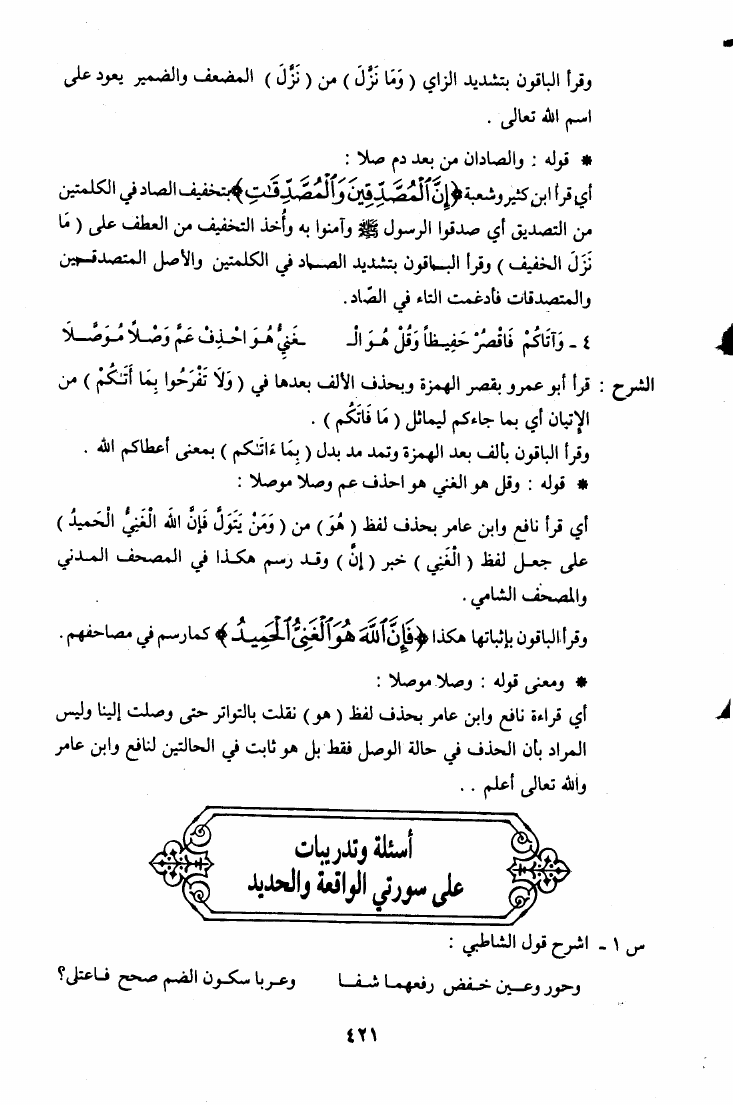 وقرأ الباقون بتشديد الزاي ( وَمَا نَزَّلَ ) من ( نَزَّلَ ) المضعف والضمير يعود على
اسم الله تعالى .
* قوله : والصادان من بعد دم صلا :
أي قرأ ابن كثير وشعبة ﴿إِنَّ ٱلْمُصَّدِّقِينَ وَٱلْمُصَّدِّقَٰتِ﴾ بتخفيف الصاد في الكلمتين
من التصديق أي صدقوا الرسول ﷺ وآمنوا به وأُخذ التخفيف من العطف على ( مَا
نَزَلَ الخفيف ) وقرأ الباقون بتشديد الصاد في الكلمتين والأصل المتصدقين
والمتصدقات فأدغمت التاء في الصّاد .
٤ ـ وَآتَاكُمْ فَاقْصُرْ حَفِيظاً وَقُلْ هُوَ الـ ـغَنِيُّ هُوَ احْذِفْ عَمَّ وَصْلًا مُوَصَّلَا
الشرح : قرأ أبو عمرو بقصر الهمزة وبحذف الألف بعدها في ( وَلَا تَفْرَحُوا بِمَا أَتَىٰكُمْ ) من
الإتيان أي بما جاءكم ليماثل ( مَا فَاتَكُم ) .
وقرأ الباقون بألف بعد الهمزة وتمد مد بدل ( بِمَا ءَاتَىٰكم ) بمعنى أعطاكم الله .
* قوله : وقل هو الغني هو احذف عم وصلا موصلا :
أي قرأ نافع وابن عامر بحذف لفظ ( هُوَ ) من ( وَمَنْ يَتَوَلَّ فَإِنَّ الله الْغَنِيُّ الْحَمِيدُ )
على جعل لفظ ( الْغَنِي ) خبر ( إِنَّ ) وقد رسم هكذا في المصحف المدني
والمصحف الشامي .
وقرأ الباقون بإثباتها هكذا ﴿فَإِنَّ ٱللَّهَ هُوَ ٱلْغَنِيُّ ٱلْحَمِيدُ﴾ كما رسم في مصاحفهم .
* ومعنى قوله : وصلا موصلا :
أي قراءة نافع وابن عامر بحذف لفظ ( هو ) نقلت بالتواتر حتى وصلت إلينا وليس
المراد بأن الحذف في حالة الوصل فقط بل هو ثابت في الحالتين لنافع وابن عامر
والله تعالى أعلم . .
أسئلة وتدريبات
على سورتي الواقعة والحديد
س ١ ـ اشرح قول الشاطبي :
وحور وعين خفض رفعهما شفا وعربا سكون الضم صحح فاعتلى؟
٤٢١